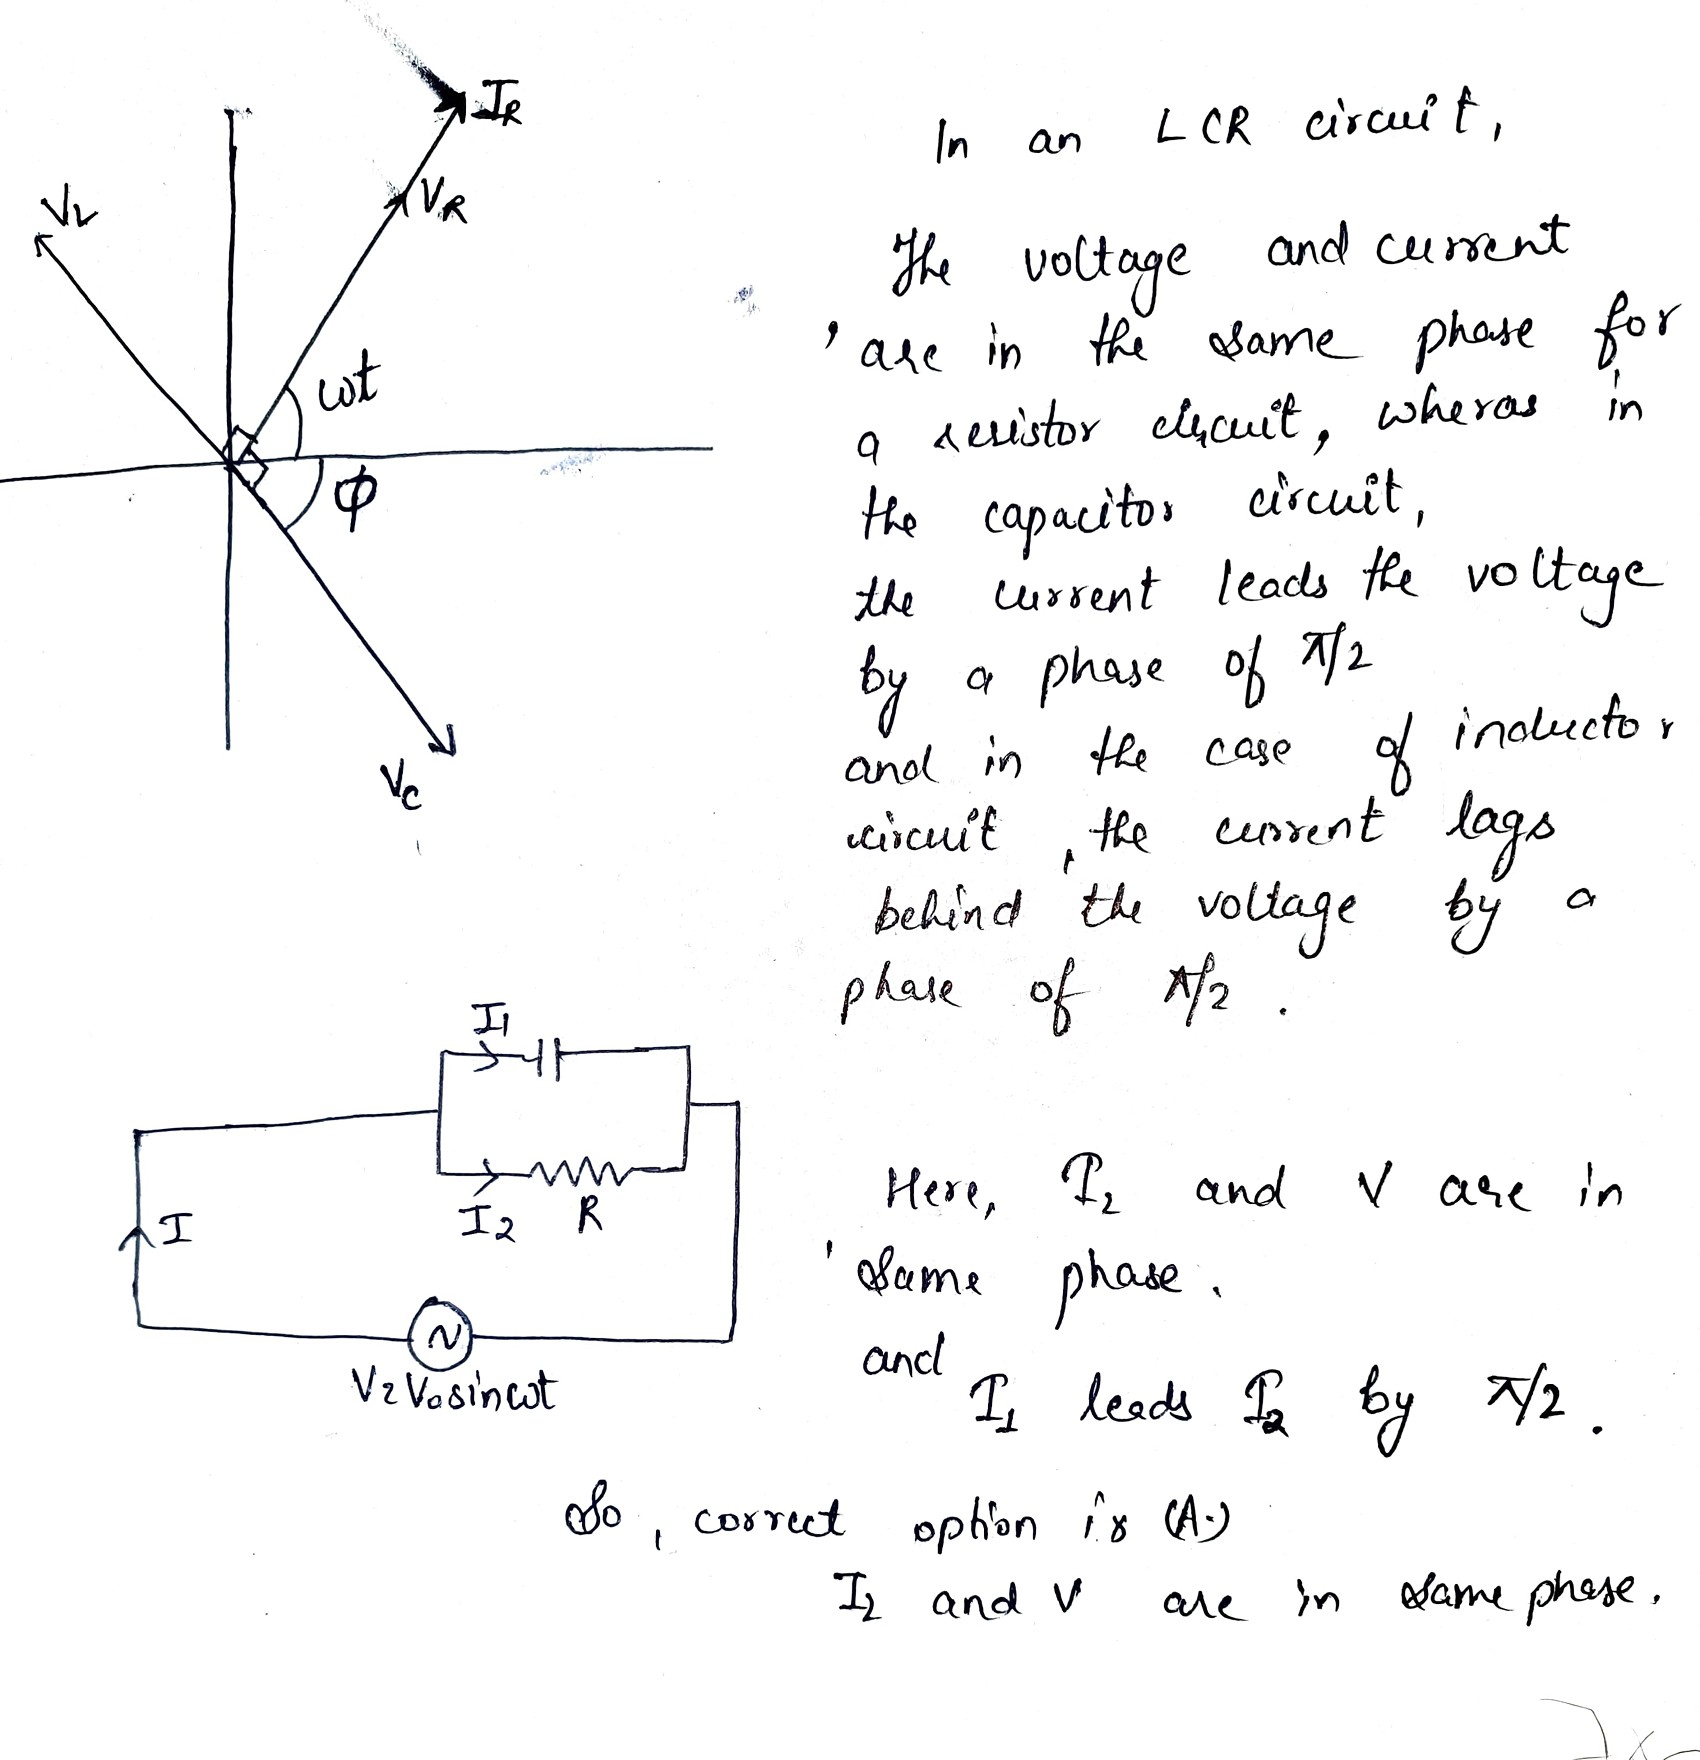 I_R
V_R
V_L
ωt
φ
V_C
In an LCR circuit,
The voltage and current
are in the same phase for
a resistor circuit, wheras in
the capacitor circuit,
the current leads the voltage
by a phase of π/2
and in the case of inductor
circuit, the current lags
behind the voltage by a
phase of π/2.
I₁
I₂ R
I
V=V₀sinωt
Here, I₂ and V are in
same phase.
and
I₁ leads I₂ by π/2.
So, correct option is (A.)
I₂ and V are in same phase.